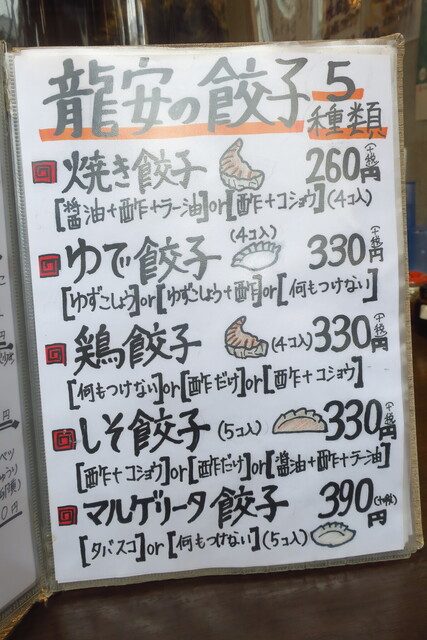 龍安の餃子5種類
焼き餃子 260円(+税)
[醤油+酢+ラー油]or[酢+コショウ](4コ入)
ゆで餃子 (4コ入) 330円(+税)
[ゆずこしょう]or[ゆずこしょう+酢]or[何もつけない]
鶏餃子 (4コ入) 330円(+税)
[何もつけない]or[酢だけ]or[酢+コショウ]
しそ餃子 (5コ入) 330円(+税)
[酢+コショウ]or[酢だけ]or[醤油+酢+ラー油]
マルゲリータ餃子 390円(+税)
[タバスコ]or[何もつけない](5コ入)